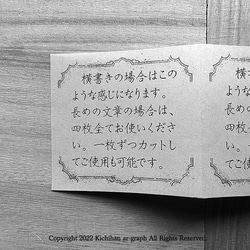 横書きの場合はこの
ような感じになります。
長めの文章の場合は、
四枚全てお使いくださ
い。一枚ずつカットし
てご使用も可能です。
横書き
ような感
長めの文
四枚全
い。一枚
てご使用
Copyright 2022 Kichihan ar-graph All Rights Reserved.